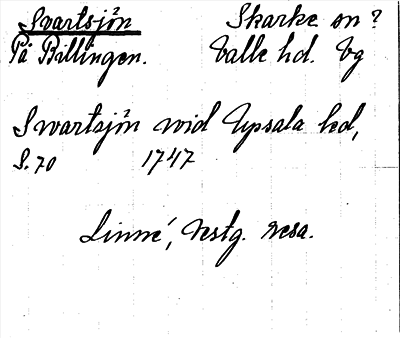 Svartsjön Skarke sn?
På Billingen. Valle hd. Vg
Swartsjön wid Upsala hed,
S. 70 1747
Linné, Vestg. resa.